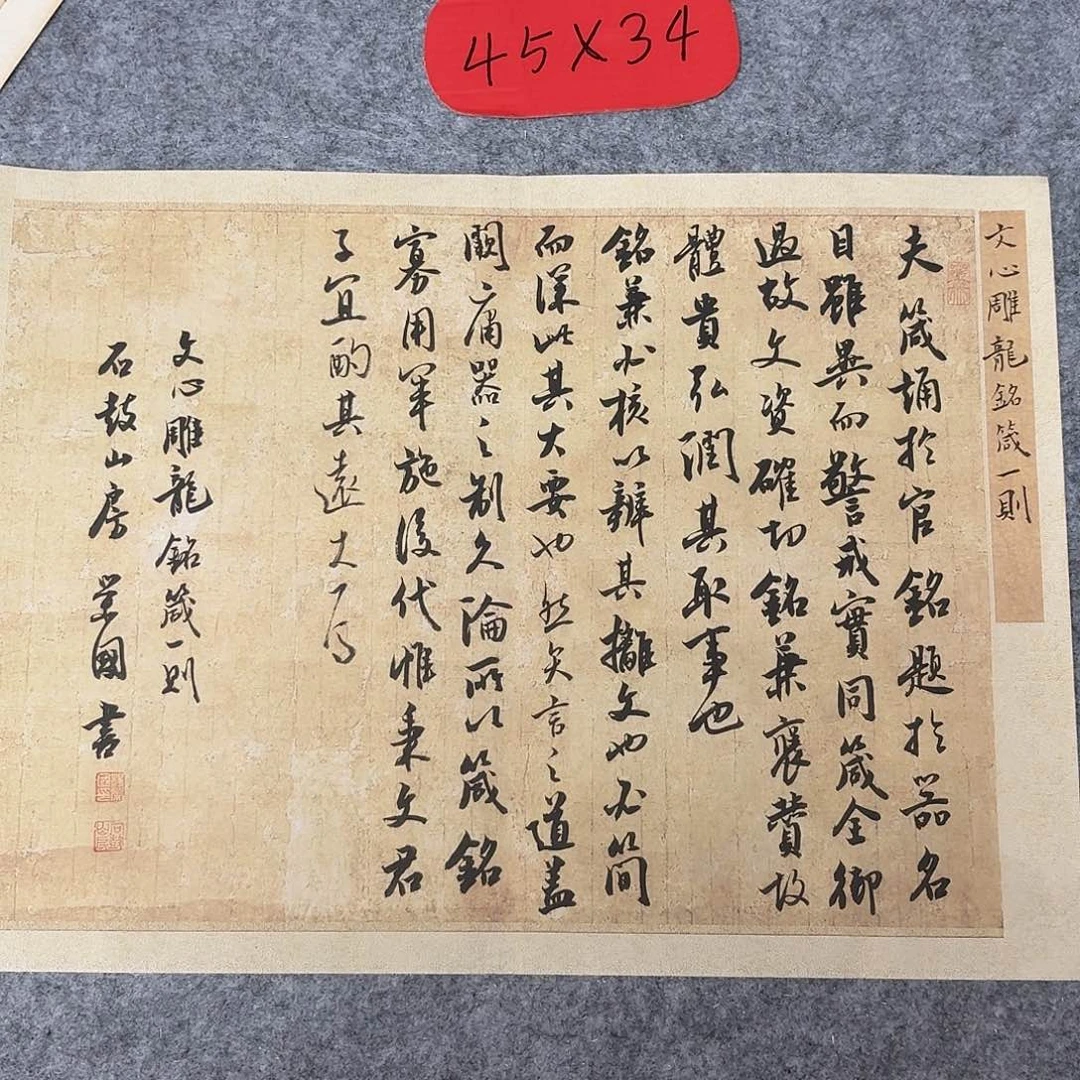 45×34
文心雕龍銘箴一則
夫箴誦於官銘題於器名
目雖異而警戒實同箴全御
過故文資確切銘兼褒讚故
體貴弘潤其取事也
銘兼必核以辨其攡文也必簡
而深此其大要也然矢言之道蓋
闕庸器之制久淪所以箴銘
寡用罕施後代惟秉文君
子宜酌其遠大焉
文心雕龍銘箴一則
石鼓山房國書